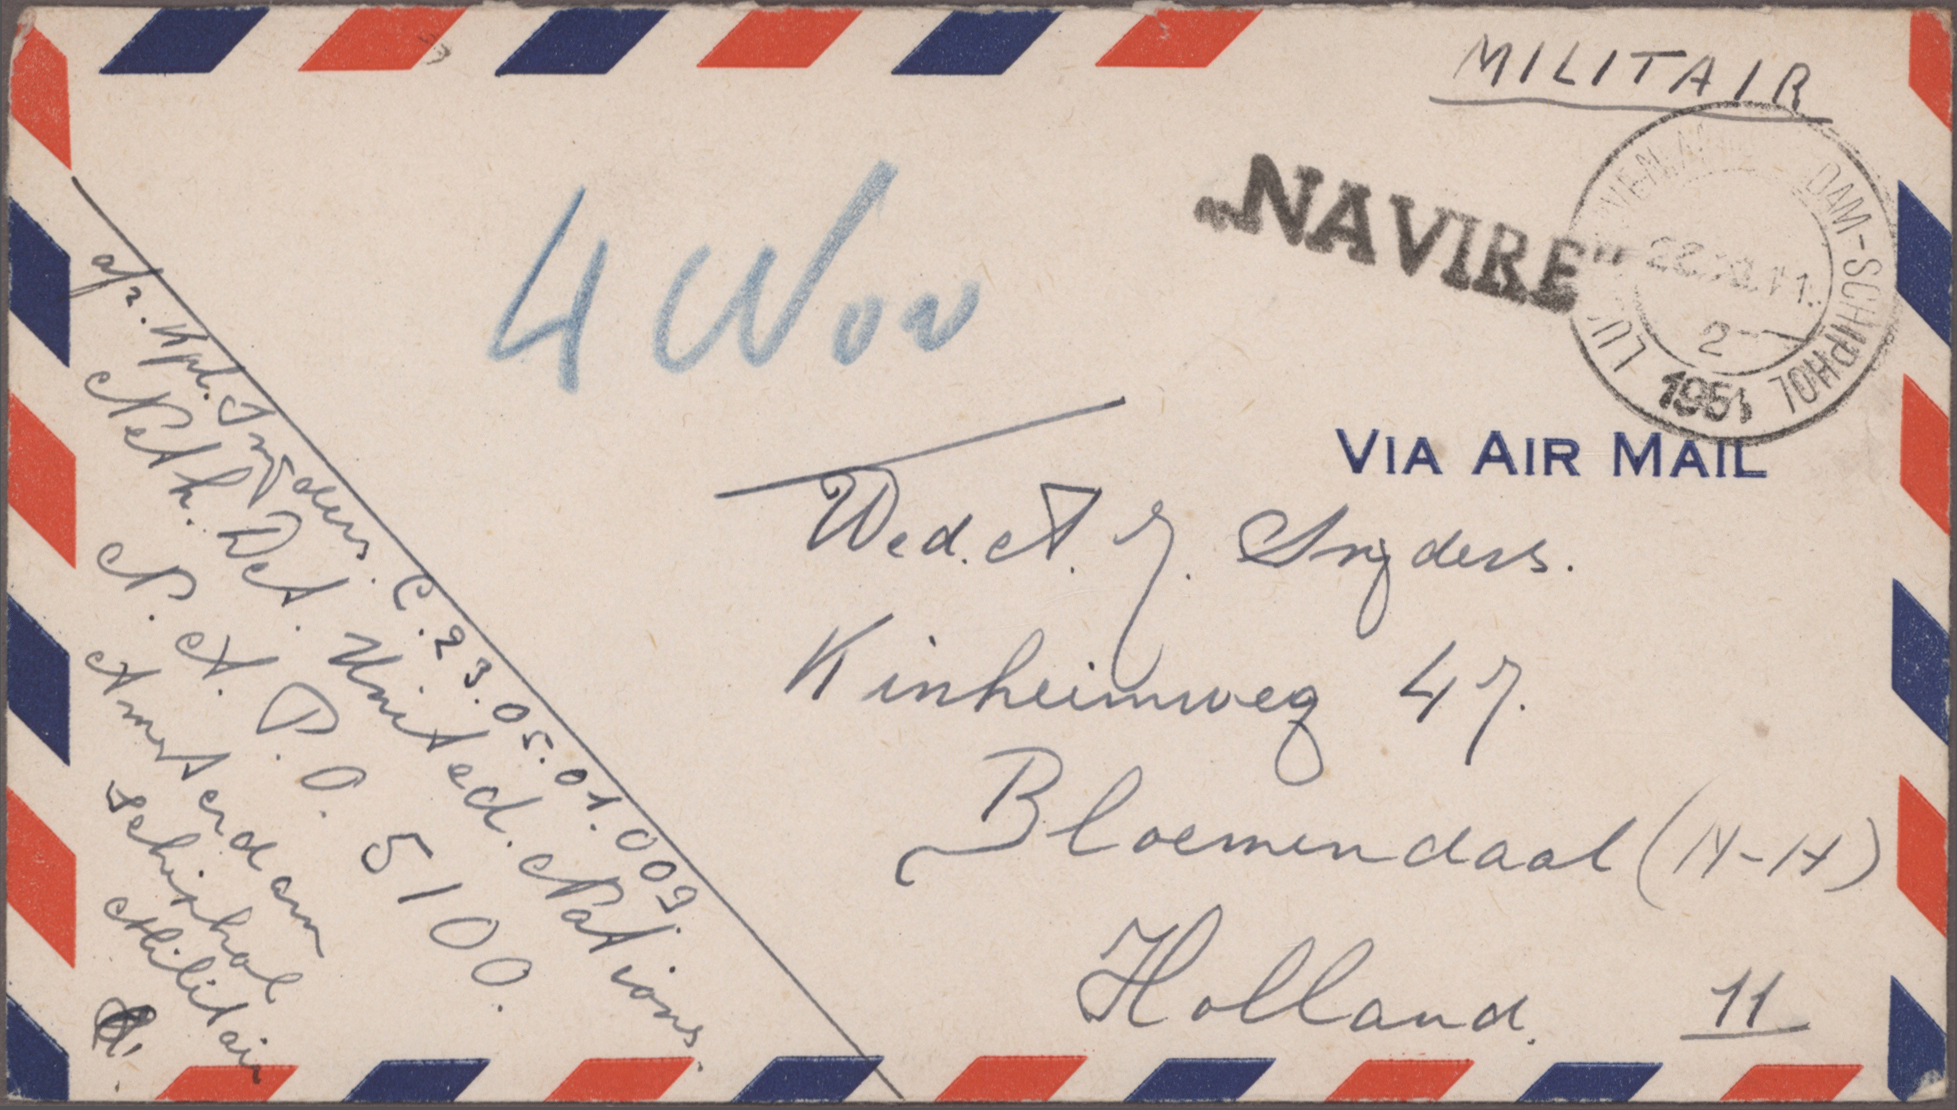 MILITAIR
„NAVIRE”
DAM-SCHIPHOL
1951
4 Nov
VIA AIR MAIL
Wed. A. J. Snyders.
Kinheimweg 47.
Bloemendaal (N-H)
Holland.
11
afz. Kpl. Snyders. C. 23.05.01.009.
Neth. Det. United. Nations.
N. A. P. O. 5100.
Amsterdam
Schiphol
Militair